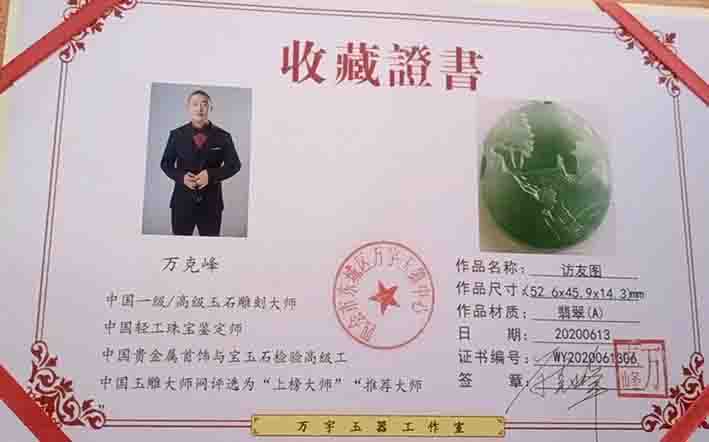 收藏證書
万克峰
中国一级/高级玉石雕刻大师
中国轻工珠宝鉴定师
中国贵金属首饰与宝玉石检验高级工
中国玉雕大师网评选为“上榜大师”“推荐大师
”
作品名称: 访友图
作品尺寸:(52.6x45.9x14.3)mm
作品材质: 翡翠(A)
日 期: 20200613
证书编号: WY2020061306
签 章:
万宇玉器工作室